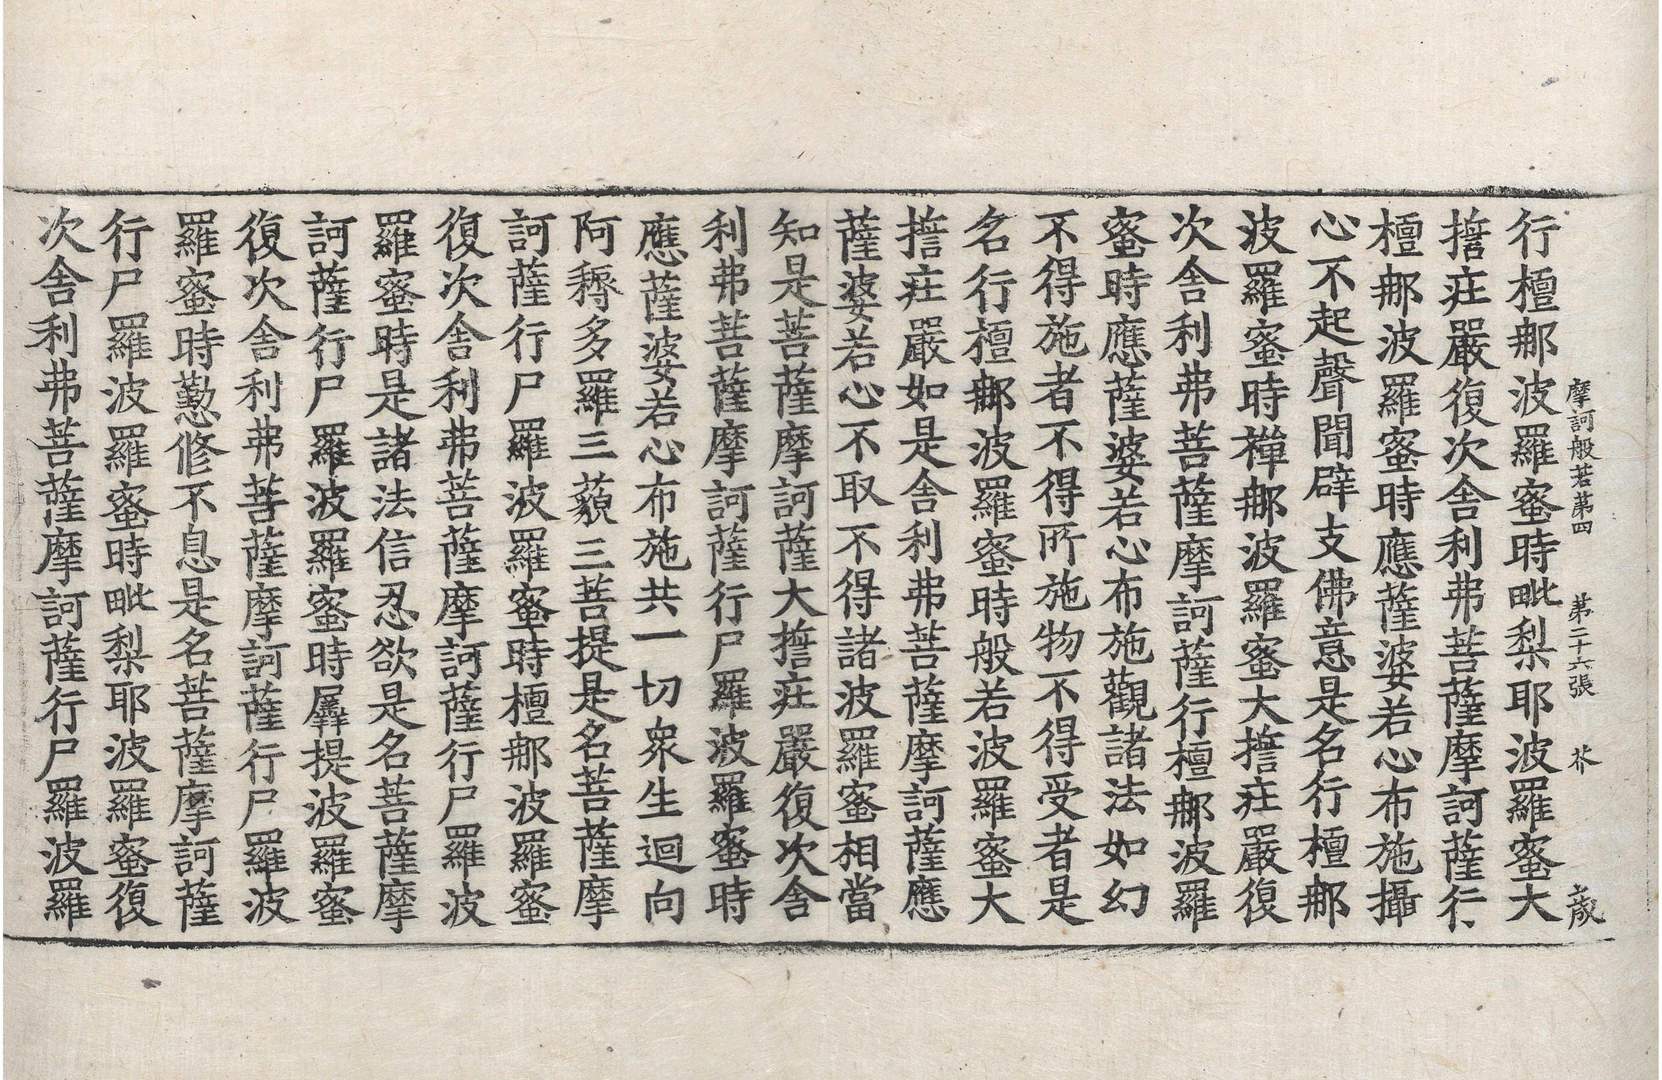 摩訶般若第四 第二十六張 芥 歲
行檀𨚗波羅蜜時毗梨耶波羅蜜大
擔莊嚴復次舍利弗菩薩摩訶薩行
檀𨚗波羅蜜時應薩婆若心布施攝
心不起聲聞辟支佛意是名行檀𨚗
波羅蜜時禪𨚗波羅蜜大擔莊嚴復
次舍利弗菩薩摩訶薩行檀𨚗波羅
蜜時應薩婆若心布施觀諸法如幻
不得施者不得所施物不得受者是
名行檀𨚗波羅蜜時般若波羅蜜大
擔莊嚴如是舍利弗菩薩摩訶薩應
薩婆若心不取不得諸波羅蜜相當
知是菩薩摩訶薩大擔莊嚴復次舍
利弗菩薩摩訶薩行尸羅波羅蜜時
應薩婆若心布施共一切衆生迴向
阿耨多羅三藐三菩提是名菩薩摩
訶薩行尸羅波羅蜜時檀𨚗波羅蜜
復次舍利弗菩薩摩訶薩行尸羅波
羅蜜時是諸法信忍欲是名菩薩摩
訶薩行尸羅波羅蜜時羼提波羅蜜
復次舍利弗菩薩摩訶薩行尸羅波
羅蜜時懃修不息是名菩薩摩訶薩
行尸羅波羅蜜時毗梨耶波羅蜜復
次舍利弗菩薩摩訶薩行尸羅波羅